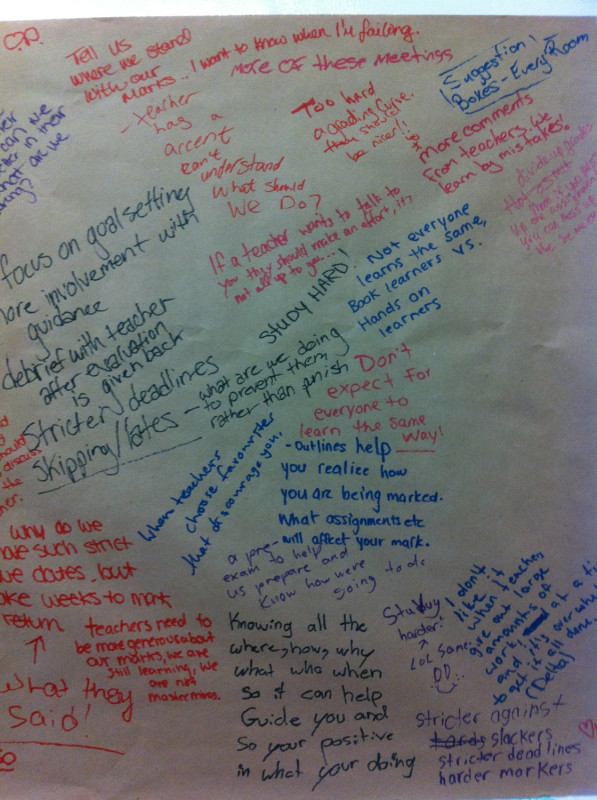 Tell us
where we stand
with our
marks.. I want to know when I'm failing.
More of these Meetings
! Suggestion !
Boxes - Every Room
- teacher
has a
accent
can't
understand
What should
We Do?
Too hard
a grading curve.
they should
be nicer!!
more comments
From teachers, We
learn by mistakes!
can we
in their
what are we
focus on goal setting
more involvement with
guidance
If a teacher wants to talk to
you they should make an effort, it's
not all up to you...
STUDY HARD!
Not everyone
learns the same,
Book learners vs.
Hands on
learners
debrief with teacher
after evaluation
is given back
Stricter deadlines
skipping/lates - what are we doing
to prevent them
rather than punish
Don't
expect for
everyone to
learn the same
Way!
When teachers
choose favourites
that discourage you.
- Outlines help
you realize how
you are being marked.
What assignments etc
will affect your mark.
a pre-
exam to help
us prepare and
know how were
going to do
Why do we
have such strict
due dates, but
take weeks to mark
return
↑
What they
Said!
teachers need to
be more generous about
our marks, we are
still learning, we
are not
masterminds.
Knowing all the
where, how, why
what who when
So it can help
Guide you and
So your positive
in what your doing
Study
harder!
LOL same.
:D
I don't
like it
when teachers
give out large
amounts of
work at a time
and it's overwhelming
to get it all done.
(Delta)
stricter against
tards slackers
stricter deadlines
harder markers